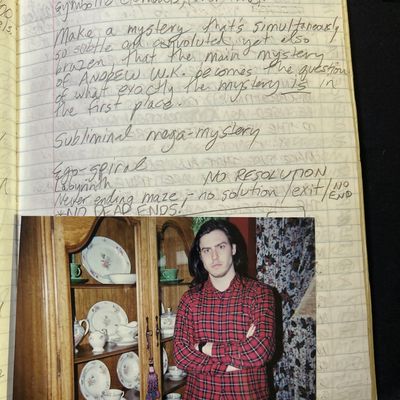 Make a mystery that's simultaneously
so subtle and convoluted, yet also
brazen, that the main mystery
of ANDREW W.K. becomes the question
of what exactly the mystery is in
the first place.
Subliminal mega-mystery
Ego-spiral
Labyrinth NO RESOLUTION
Never ending maze, no solution/exit/NO END
NO DEAD ENDS.